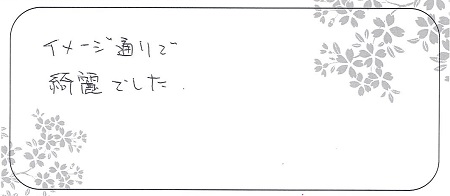 イメージ通りで
綺麗でした.